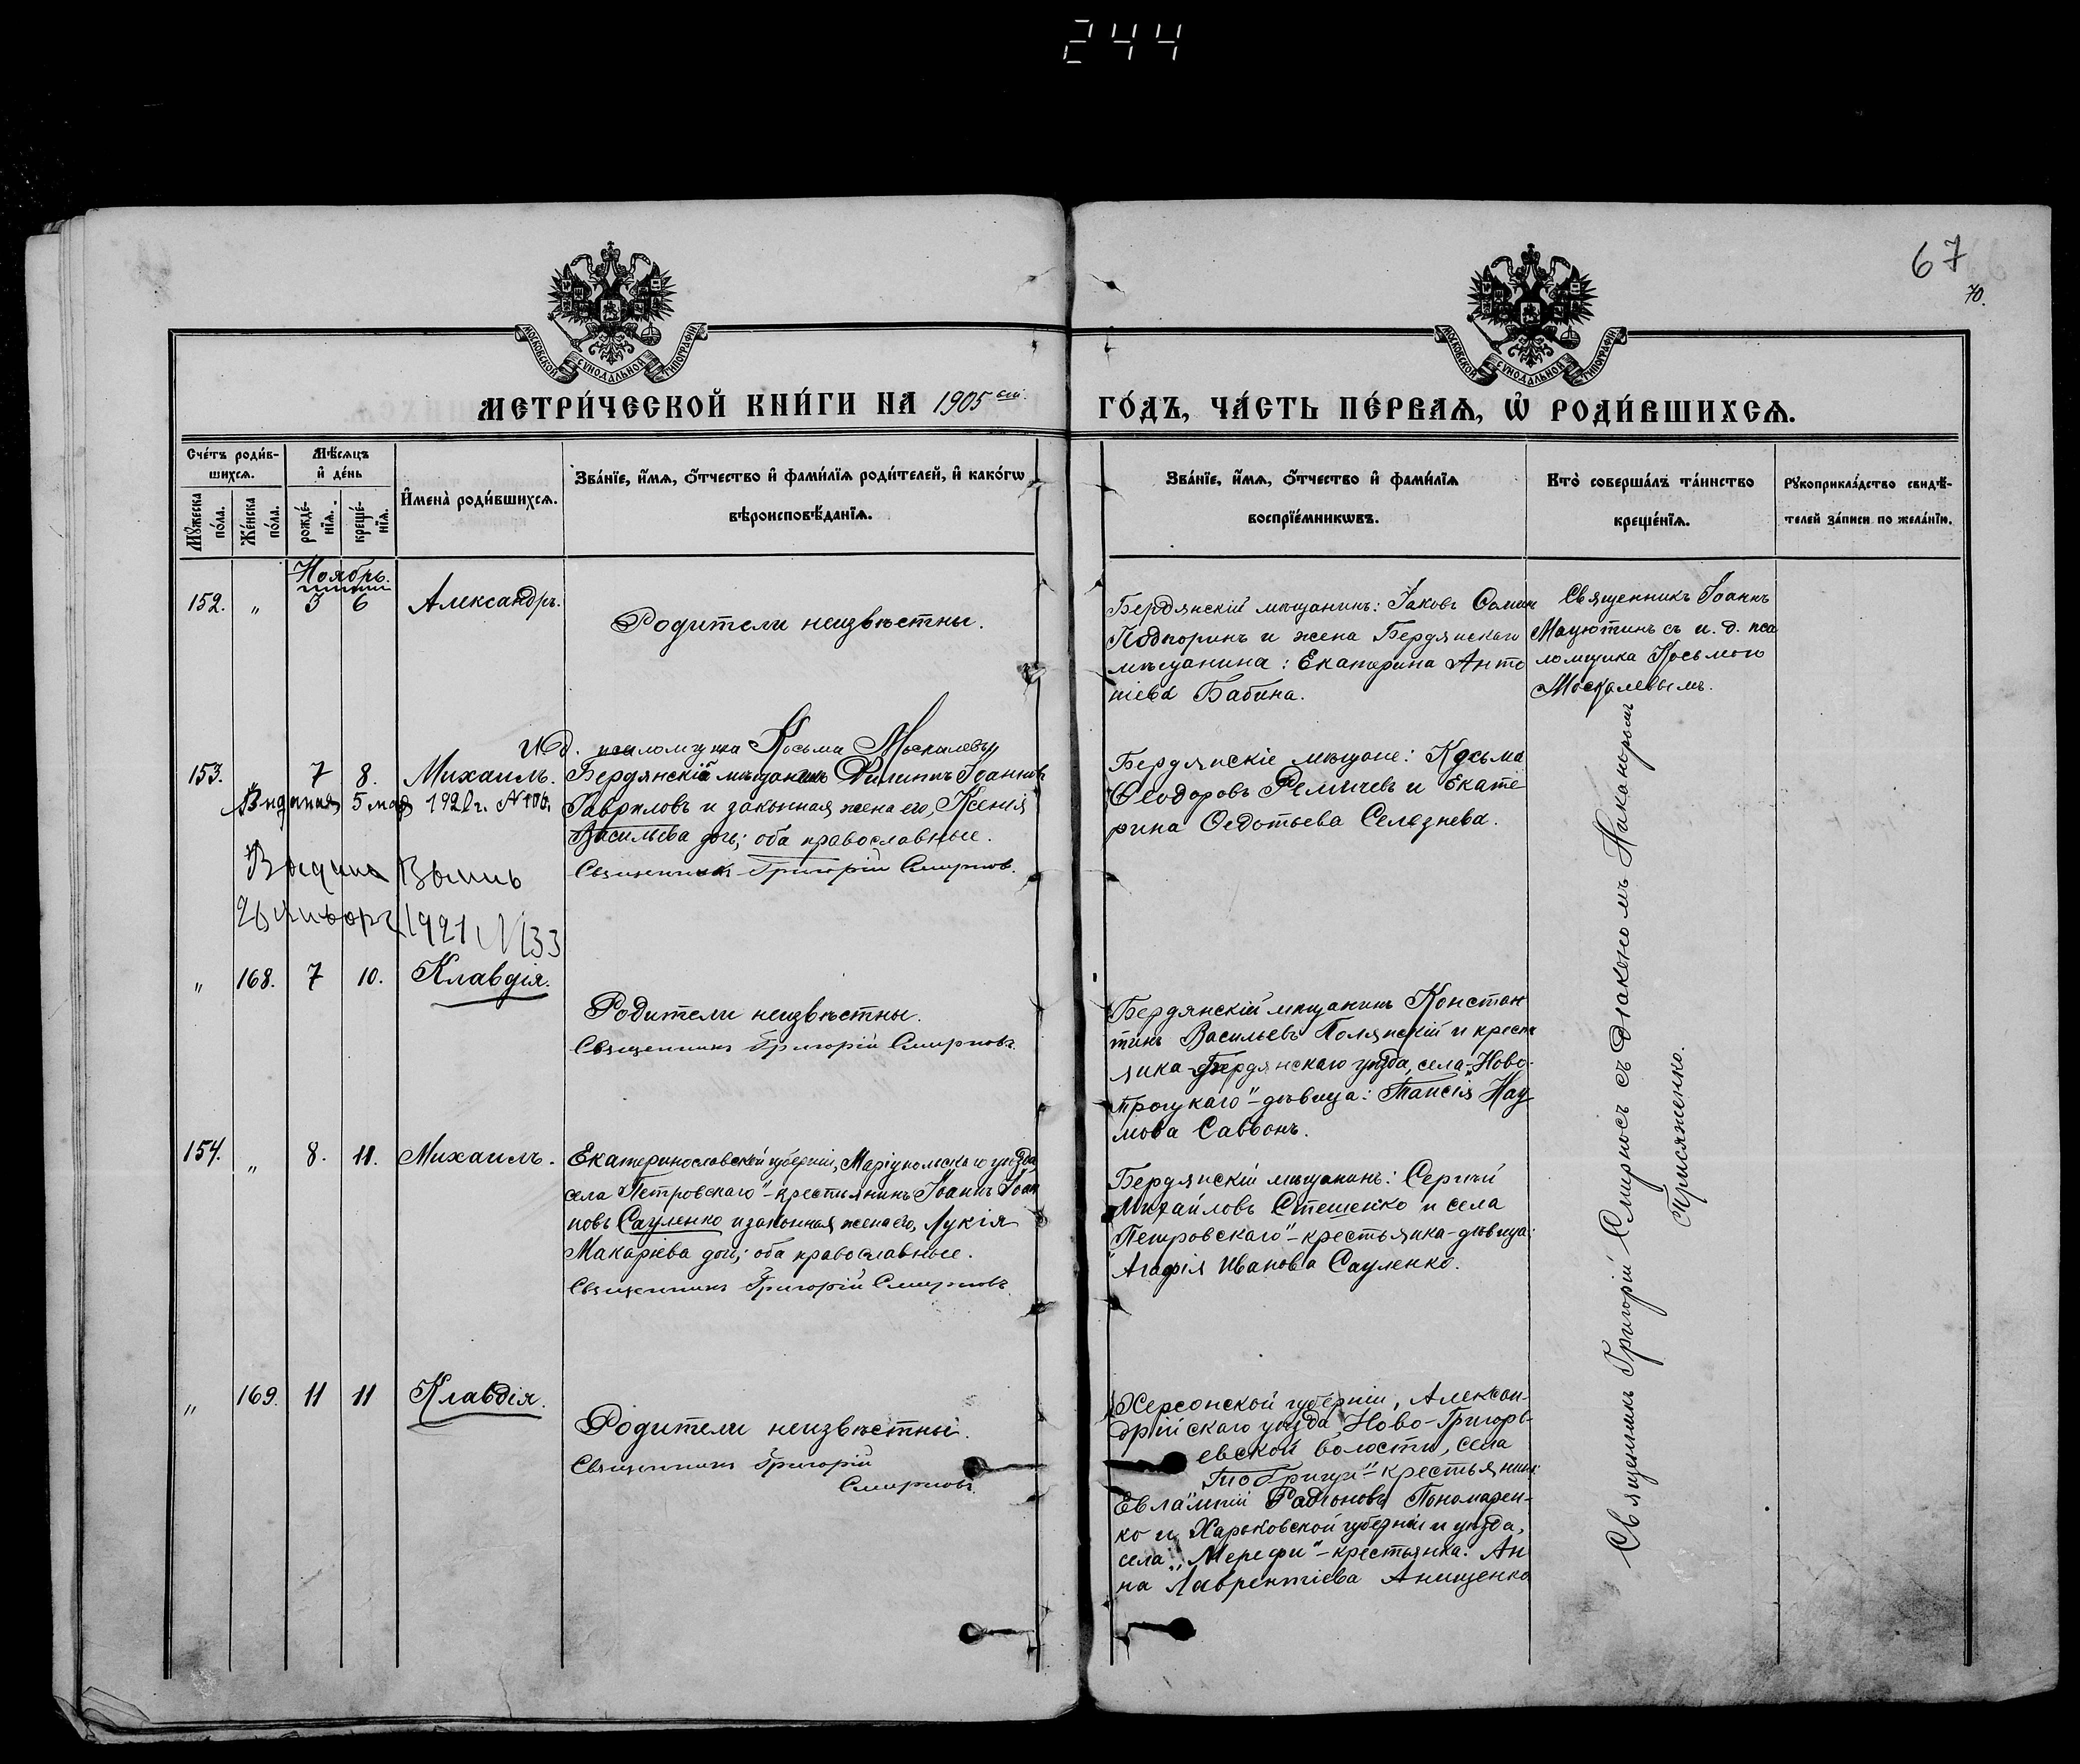 244
67
70.
МОСКОВСКОЙ СУНОДАЛЬНОЙ ТИПОГРАФІИ
МОСКОВСКОЙ СУНОДАЛЬНОЙ ТИПОГРАФІИ
МЕТРИ́ЧЕСКОЙ КНИ́ГИ НА 1905 ый
ГО́ДЪ, ЧА́СТЬ ПЕ́РВАѦ, Ѡ РОДИ́ВШИХСѦ.
Сче́тъ роди́вшихсѧ.
Мꙋ́жеска по́ла.
Же́нска по́ла.
Мѣ́сѧцъ и҆ де́нь
рожде́нїѧ.
креще́нїѧ.
И҆мена̀ роди́вшихсѧ.
Зва́нїе, и҆́мѧ, ѻ҆́тчество и҆ фами́лїѧ роди́телей, и҆ како́гѡ
вѣроисповѣ́данїѧ.
Зва́нїе, и҆́мѧ, ѻ҆́тчество и҆ фами́лїѧ
воспрїе́мникѡвъ.
Кто̀ соверша́лъ та́инство
креще́нїѧ.
Рꙋкоприкла́дство свидѣ́-
телей за́писи по жела́нїю.
Ноябрь.
152. " 5 6 Александръ.
Родители неизвѣстны.
Бердянскій мѣщанинъ: Іаковъ
Подпоринъ и жена Бердянскаго
мѣщанина: Екатерина Анто
ніева Бабина.
Священникъ Іоаннъ
Мацютинъ съ и. д. пса
ломщика Косьмою
Москалевымъ.
И.д. псаломщика Косьма Москалевъ
153. 7 8. Михаилъ.
Бердянскій мѣщанинъ Филиппъ Іоанновъ
Гавриловъ и законная жена его, Ксенія
Васильева дочь; оба православные.
Священникъ Григорій Смирнов.
Выдана 5 мая 192 г. N 106.
Выдана Выпись
20 января 1921 N 133
Бердянскіе мѣщане: Косьма
Ѳеодоровъ Ремичевъ и Екате
рина Ѳедотьева Селезнева.
" 168. 7 10. Клавдія.
Родители неизвѣстны.
Священникъ Григорій Смирновъ.
Бердянскій мѣщанинъ Констан
тинъ Васильевъ Полянскій и кресть
янка Бердянскаго уѣзда, села „Ново-
троцкаго"-дѣвица: Таисія Нау
мова Саввонъ.
154. " 8. 11. Михаилъ.
Екатеринославской губерніи, Маріупольскаго уѣзда,
села „Петровскаго"-крестьянинъ Іоаннъ Іоан
новъ Сауленко и законная жена его, Лукія
Макаріева дочь; оба православные.
Священникъ Григорій Смирновъ.
Бердянскій мѣщанинъ: Сергій
Михайловъ Стешенко и села
„Петровскаго"-крестьянка-дѣвица:
Агафія Иванова Сауленко.
" 169. 11 11 Клавдія.
Родители неизвѣстны.
Священникъ Григорій
Смирновъ.
Херсонской губерніи, Алексан-
дрійскаго уѣзда, Ново-Григорь-
евской волости, села
крестьянинъ:
Евлампій Радіоновъ Пономарен-
ко и Харьковской губерніи и уѣзда,
села „Мерефи"-крестьянка: Ан
на Лаврентіева Анищенко
Священникъ Григорій Смирновъ съ діакономъ Никаноромъ
Присяженко.